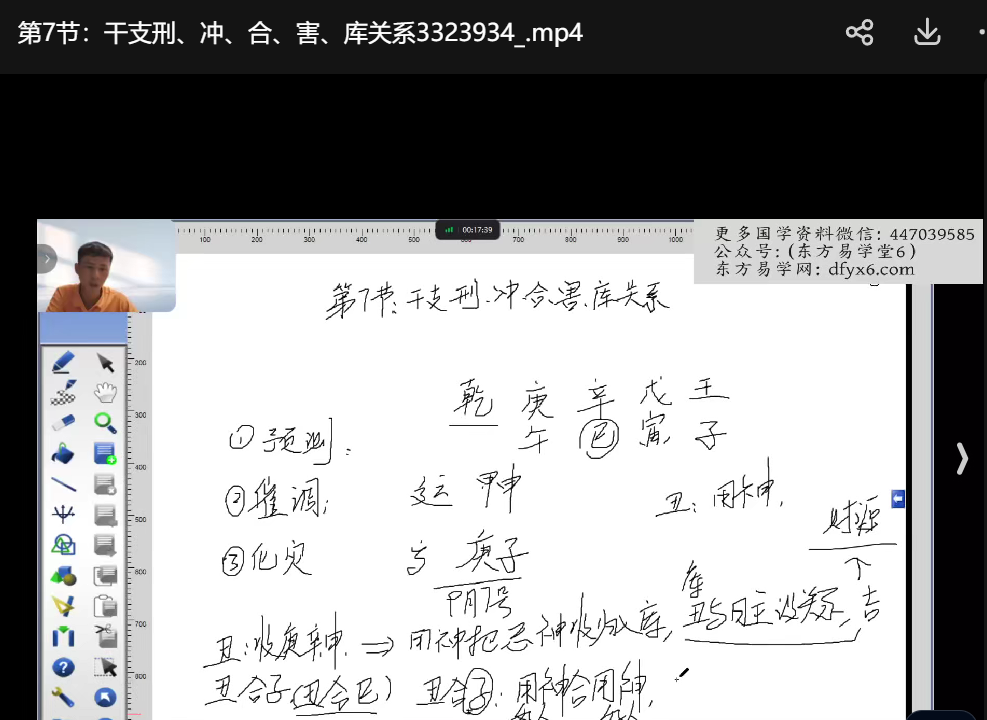 第7节：干支刑、冲、合、害、库关系3323934_.mp4
00:17:39
更多国学资料微信：447039585
公众号：(东方易学堂6)
东方易学网：dfyx6.com
100 200 300 400 500 700 800 900 1000
第7节：干支刑.冲.合.害.库关系
乾 庚 辛 戊 壬
午 巳 寅 子
①预测：
②催调；
运 甲申
丑：用神.
财源
③化灾
庚子
库
丑：收庚辛申 ⇒ 用神把忌神收为入库，丑与日主没关系，吉
丑合子(丑合巳) 丑合子：用神合用神.
200
300
400
500
600
700
800